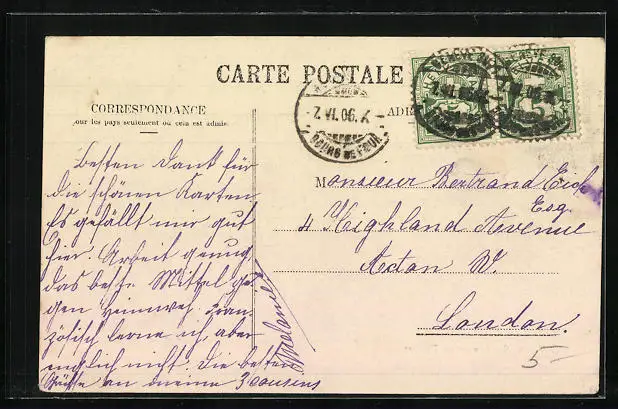 CARTE POSTALE
CORRESPONDANCE
pour les pays seulement où cela est admis.
ADR
HELVETIA
7. VI. 06.
BOURG DE FOUR
Besten Dank für
die schönen Karten.
Es gefällt mir gut
hier. Arbeit genug,
das beste Mittel ge-
gen Heimweh. Fran-
zösisch lerne ich, aber
englisch nicht. Die besten
Grüsse an meine 3 cousins
Melanie
Monsieur Bertrand
Esq.
4 Highland Avenue
Acton W.
London.
5-